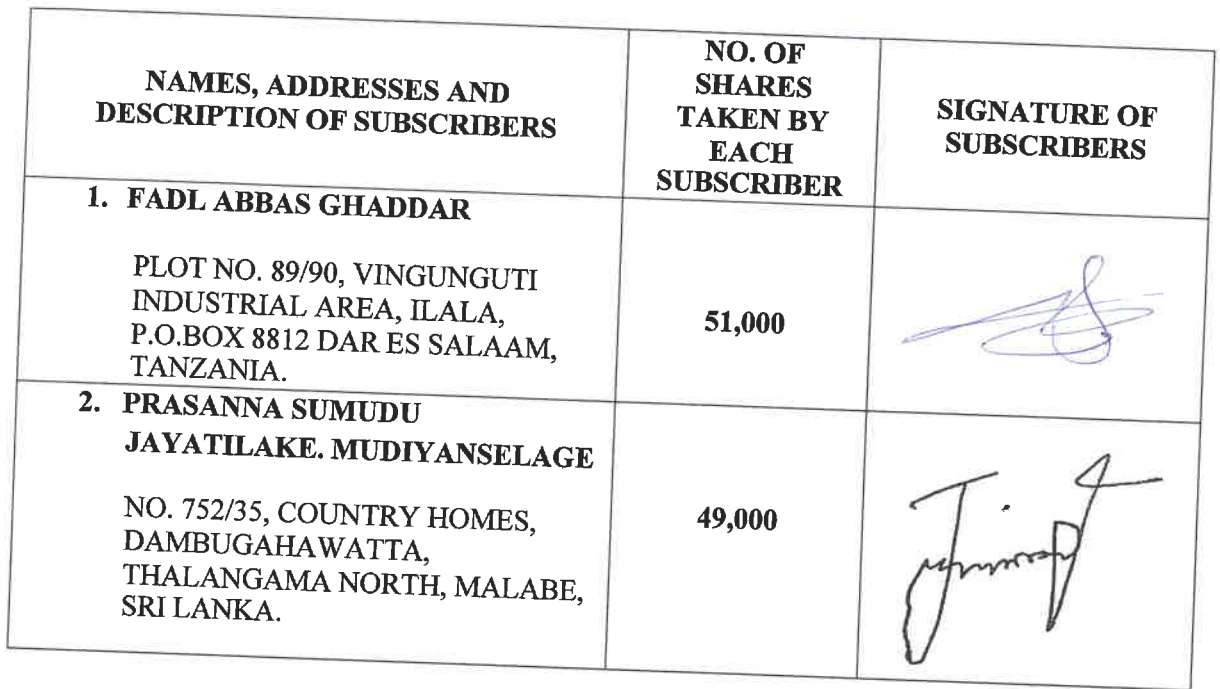 NAMES, ADDRESSES AND
DESCRIPTION OF SUBSCRIBERS
NO. OF
SHARES
TAKEN BY
EACH
SUBSCRIBER
SIGNATURE OF
SUBSCRIBERS
1. FADL ABBAS GHADDAR
PLOT NO. 89/90, VINGUNGUTI
INDUSTRIAL AREA, ILALA,
P.O.BOX 8812 DAR ES SALAAM,
TANZANIA.
51,000
2. PRASANNA SUMUDU
JAYATILAKE. MUDIYANSELAGE
NO. 752/35, COUNTRY HOMES,
DAMBUGAHAWATTA,
THALANGAMA NORTH, MALABE,
SRI LANKA.
49,000